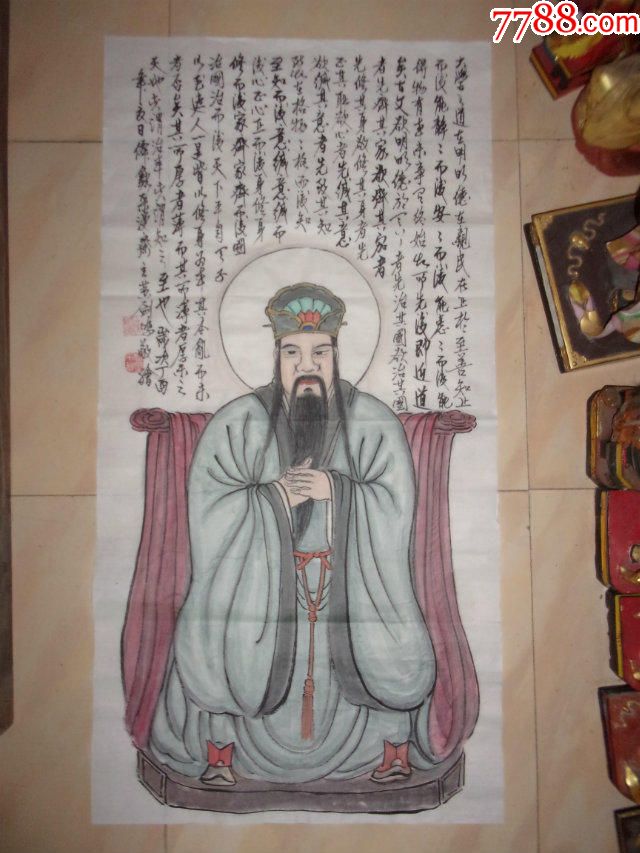 7788.com
大學之道在明明德在親民在止於至善知止
而後能靜々而後安々而後能慮々而後能
得物有本末事有終始知所先後則近道
矣古文欲明明德於天下者先治其國欲治其國
者先齊其家欲齊其家者
先修其身欲修其身者先
正其心者先誠其意
欲誠其意者先致其知
致知在格物々格而後知
至知而後意誠意誠而
後心正心正而後身修身
修而後家齊家齊而後國
治國治而後天下平自天子
以至庶人一是皆以修身為本其本亂而末
者否矣其所厚者薄而其所薄者厚未之
此謂知之至也歲次丁酉
日